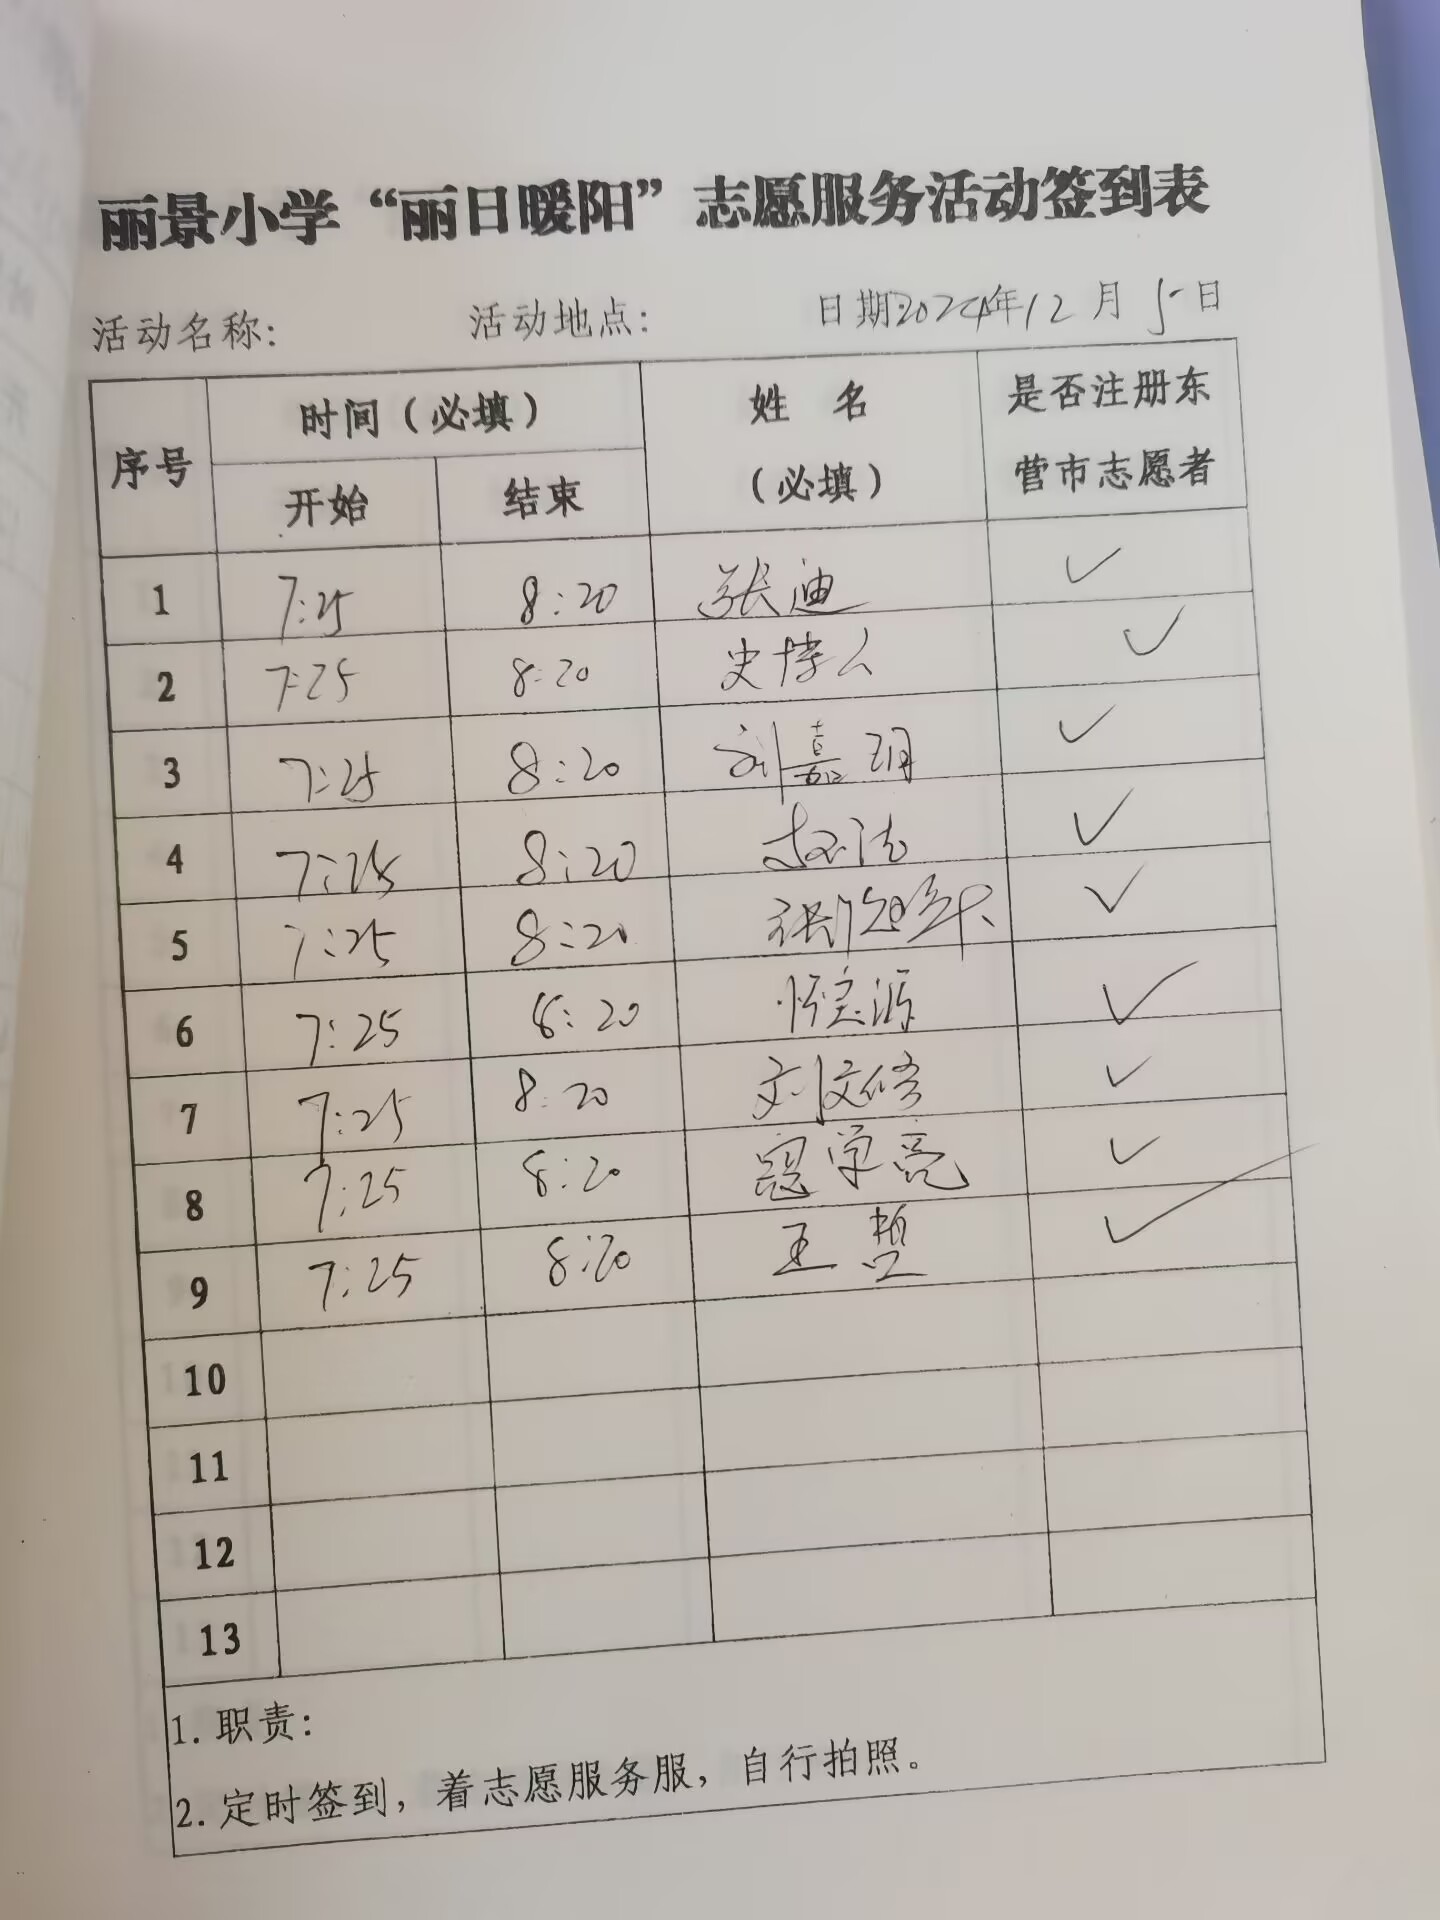 丽景小学“丽日暖阳”志愿服务活动签到表
活动名称: 活动地点: 日期2024年12月5日
序号 时间（必填） 姓 名 是否注册东
开始 结束 （必填） 营市志愿者
1 7:25 8:20 张迪 ✓
2 7:25 8:20 史博 ✓
3 7:25 8:20 刘嘉玥 ✓
4 7:25 8:20 ✓
5 7:25 8:20 张 ✓
6 7:25 8:20 源 ✓
7 7:25 8:20 刘文修 ✓
8 7:25 8:20 寇学亮 ✓
9 7:25 8:20 王哲 ✓
10
11
12
13
1. 职责:
2. 定时签到，着志愿服务服，自行拍照。